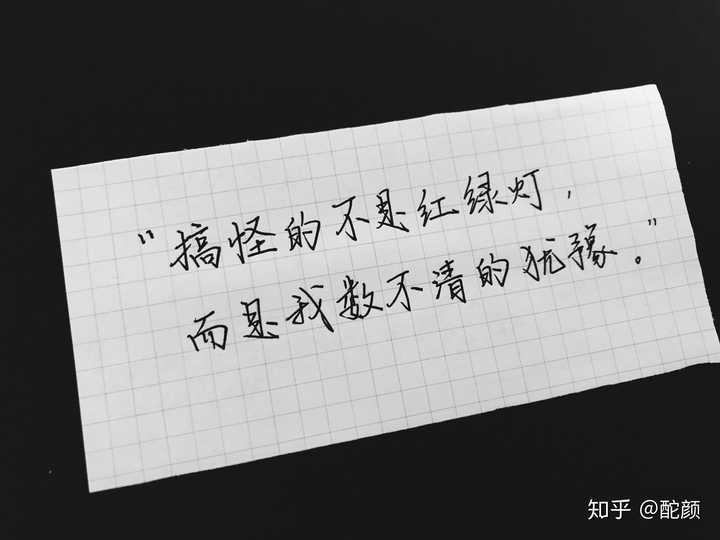 “搞怪的不是红绿灯，
而是我数不清的犹豫。”
知乎 @酡颜